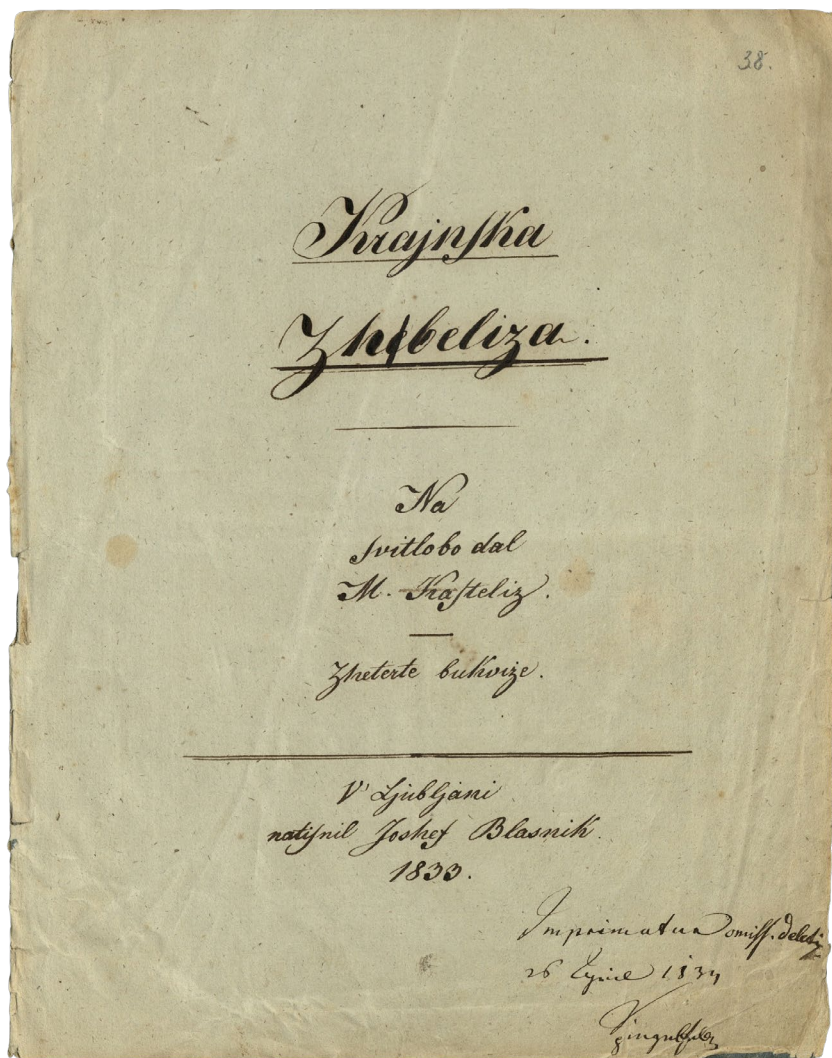 38.
Krajnſka
Zhbeliza.
Na
ſvitlobo dal
M. Kaſteliz.
Zheterte bukvize.
V' Ljubljani
natiſnil Joshef Blasnik.
1833.
Imprimatur omiſſ. deletis
26 1834